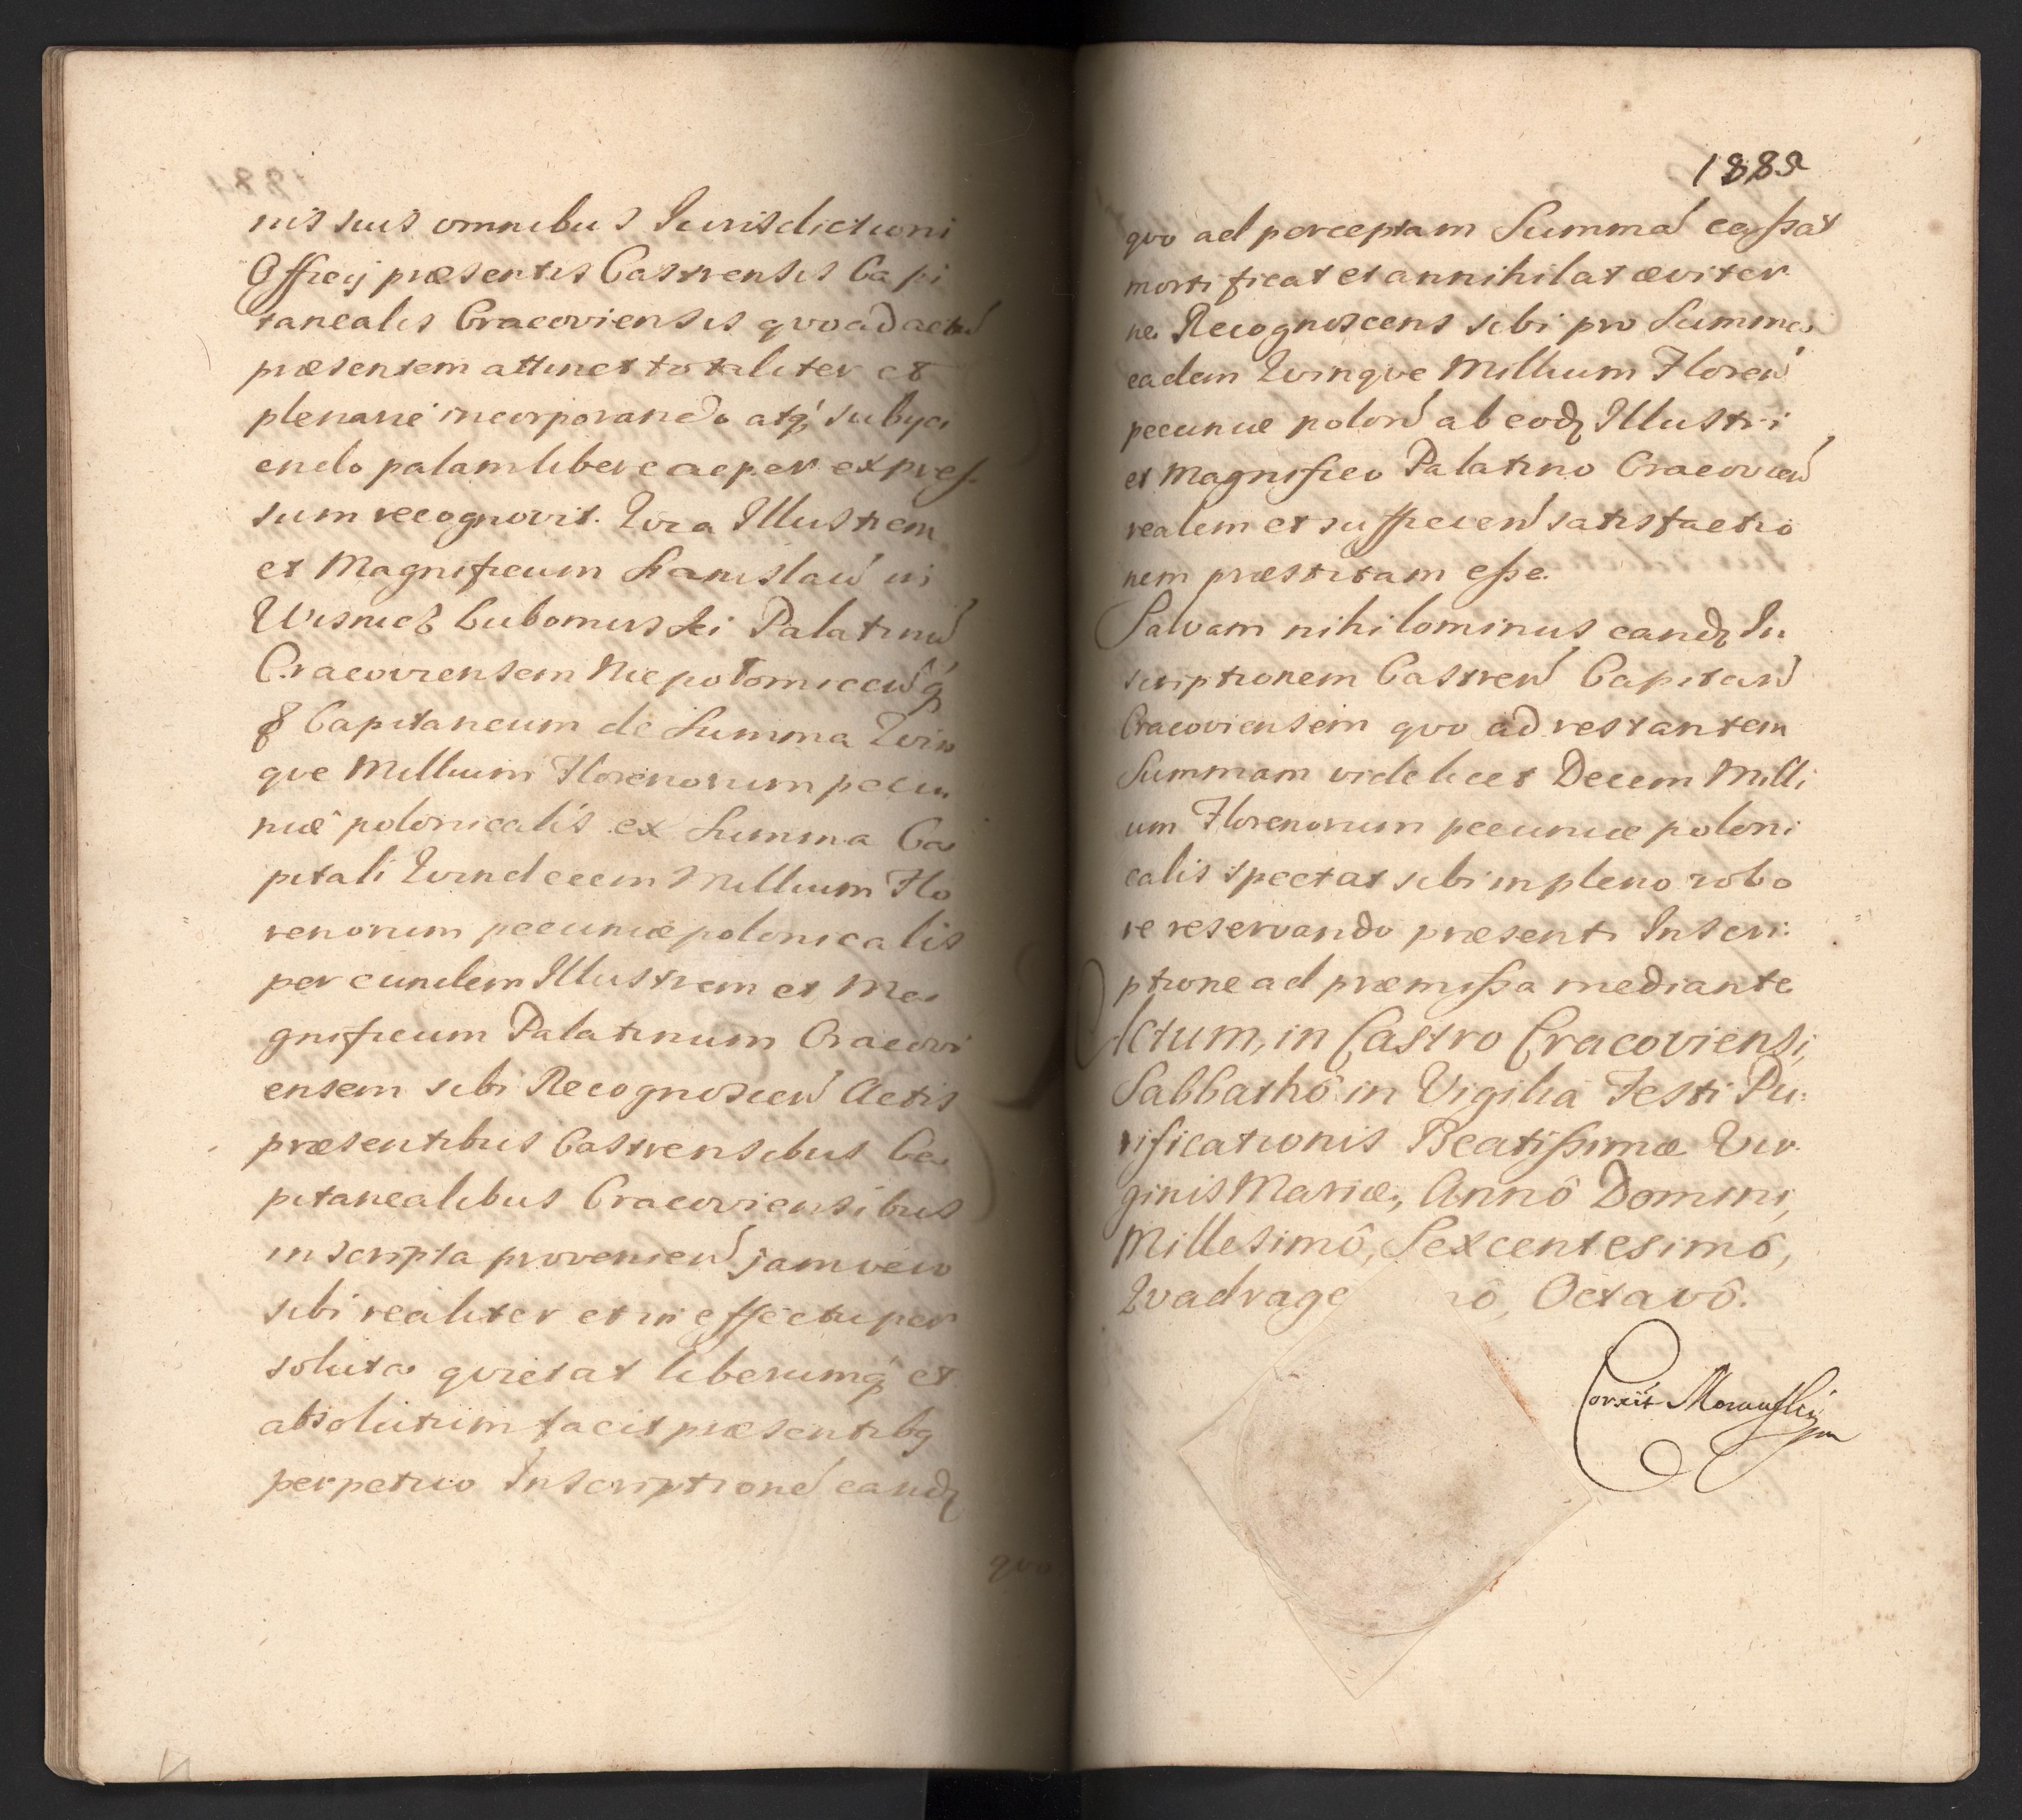 nis suis omnibus Iurisdictioni
Officij præsentis Castrensis Capi
tanealis Cracoviensis qvoad actu
præsentem attinet totaliter et
plenarie incorporando atq subyci
endo palam libere ac per expres
sum recognovit. Qvia Illustrem
et Magnificum Stanislau in
Wisnicz Lubomirski Palatinu
Cracoviensem Niepolomicen q
& Capitaneum de Summa Qvin
qve Millium Florenorum pecu
niæ polonicalis ex Summa Ca
pitali Qvindecem Millium Flo
renorum pecuniæ polonicalis
per eundem Illustrem et Ma
gnificum Palatinum Cracovi
ensem sibi Recognoscen Actis
præsentibus Castrensibus Ca
pitanealibus Cracoviensibus
inscripta provenien jam vero
sibi realiter et in effectu per
soluta qvietat liberumq et
absolutum facit præsentibq
perpetuo Inscriptione eandq
qvo
1885
qvo ad perceptam Summa cassat
mortificat et annihilat æviter
ne Recognoscens sibi pro Summa
eadem Qvinqve Millium Floren
pecuniæ polon ab eodq Illustri
et Magnifico Palatino Cracovien
realem et sufficien satisfactio
nem præstitam esse.
Salvam nihilominus eandq In
scriptionem Castren Capitan
Cracoviensem qvo ad restantem
Summam videlicet Decem Milli
um Florenorum pecuniæ poloni
calis spectat sibi in pleno robo
re reservando præsenti Inscri:
ptione ad præmissa mediante
Actum, in Castro Cracoviensi,
Sabbathô in Vigilia Festi Pu:
rificationis Beatissimæ Vir
ginis Mariæ, Annô Domini,
Millesimô, Sexcentesimô,
Qvadrage nô, Octavô.
Corxit